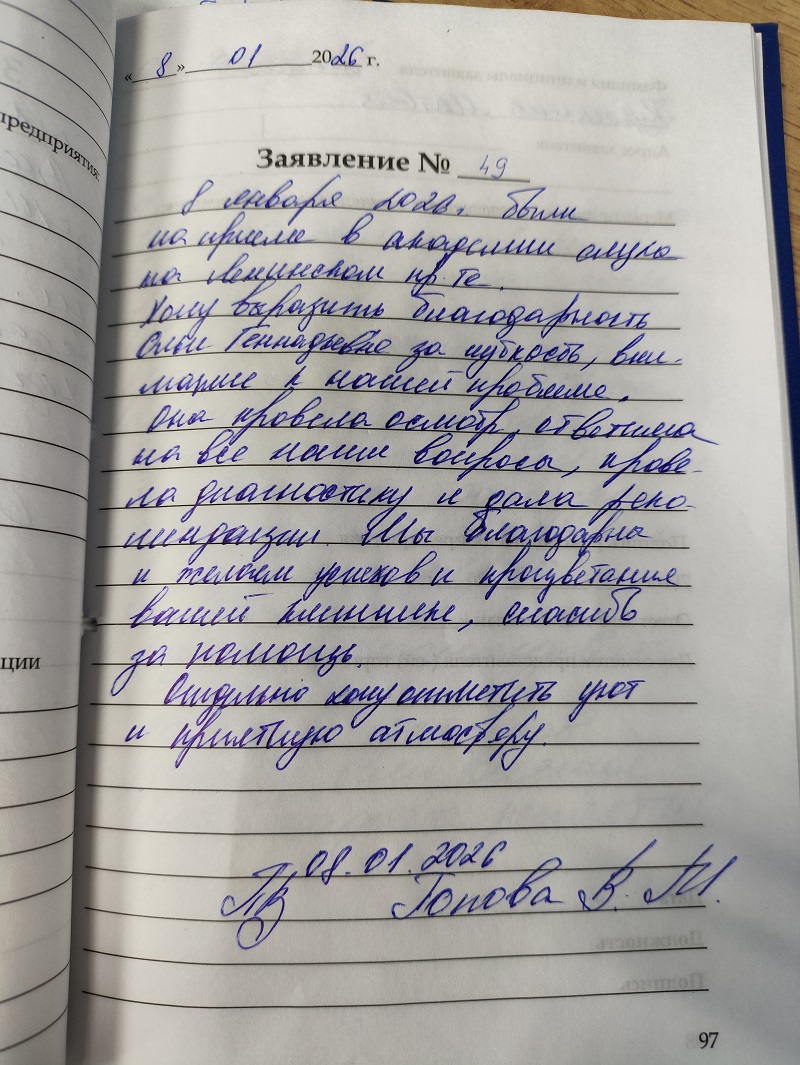 предприятия:
ции
« 8 » 01 2026 г.
Заявление № 49
8 января 2026г. были
на приеме в академии слуха
на Ленинском пр-те.
Хочу выразить благодарность
Ольге Геннадьевне за чуткость, вни-
мание к нашей проблеме.
Она провела осмотр, ответила
на все наши вопросы, прове-
ла диагностику и дала реко-
мендации. Мы благодарны
и желаем успехов и процветания
вашей клинике, спасибо
за помощь.
Отдельно хочу отметить уют
и приятную атмосферу.
08.01.2026
Попова В. М.
97